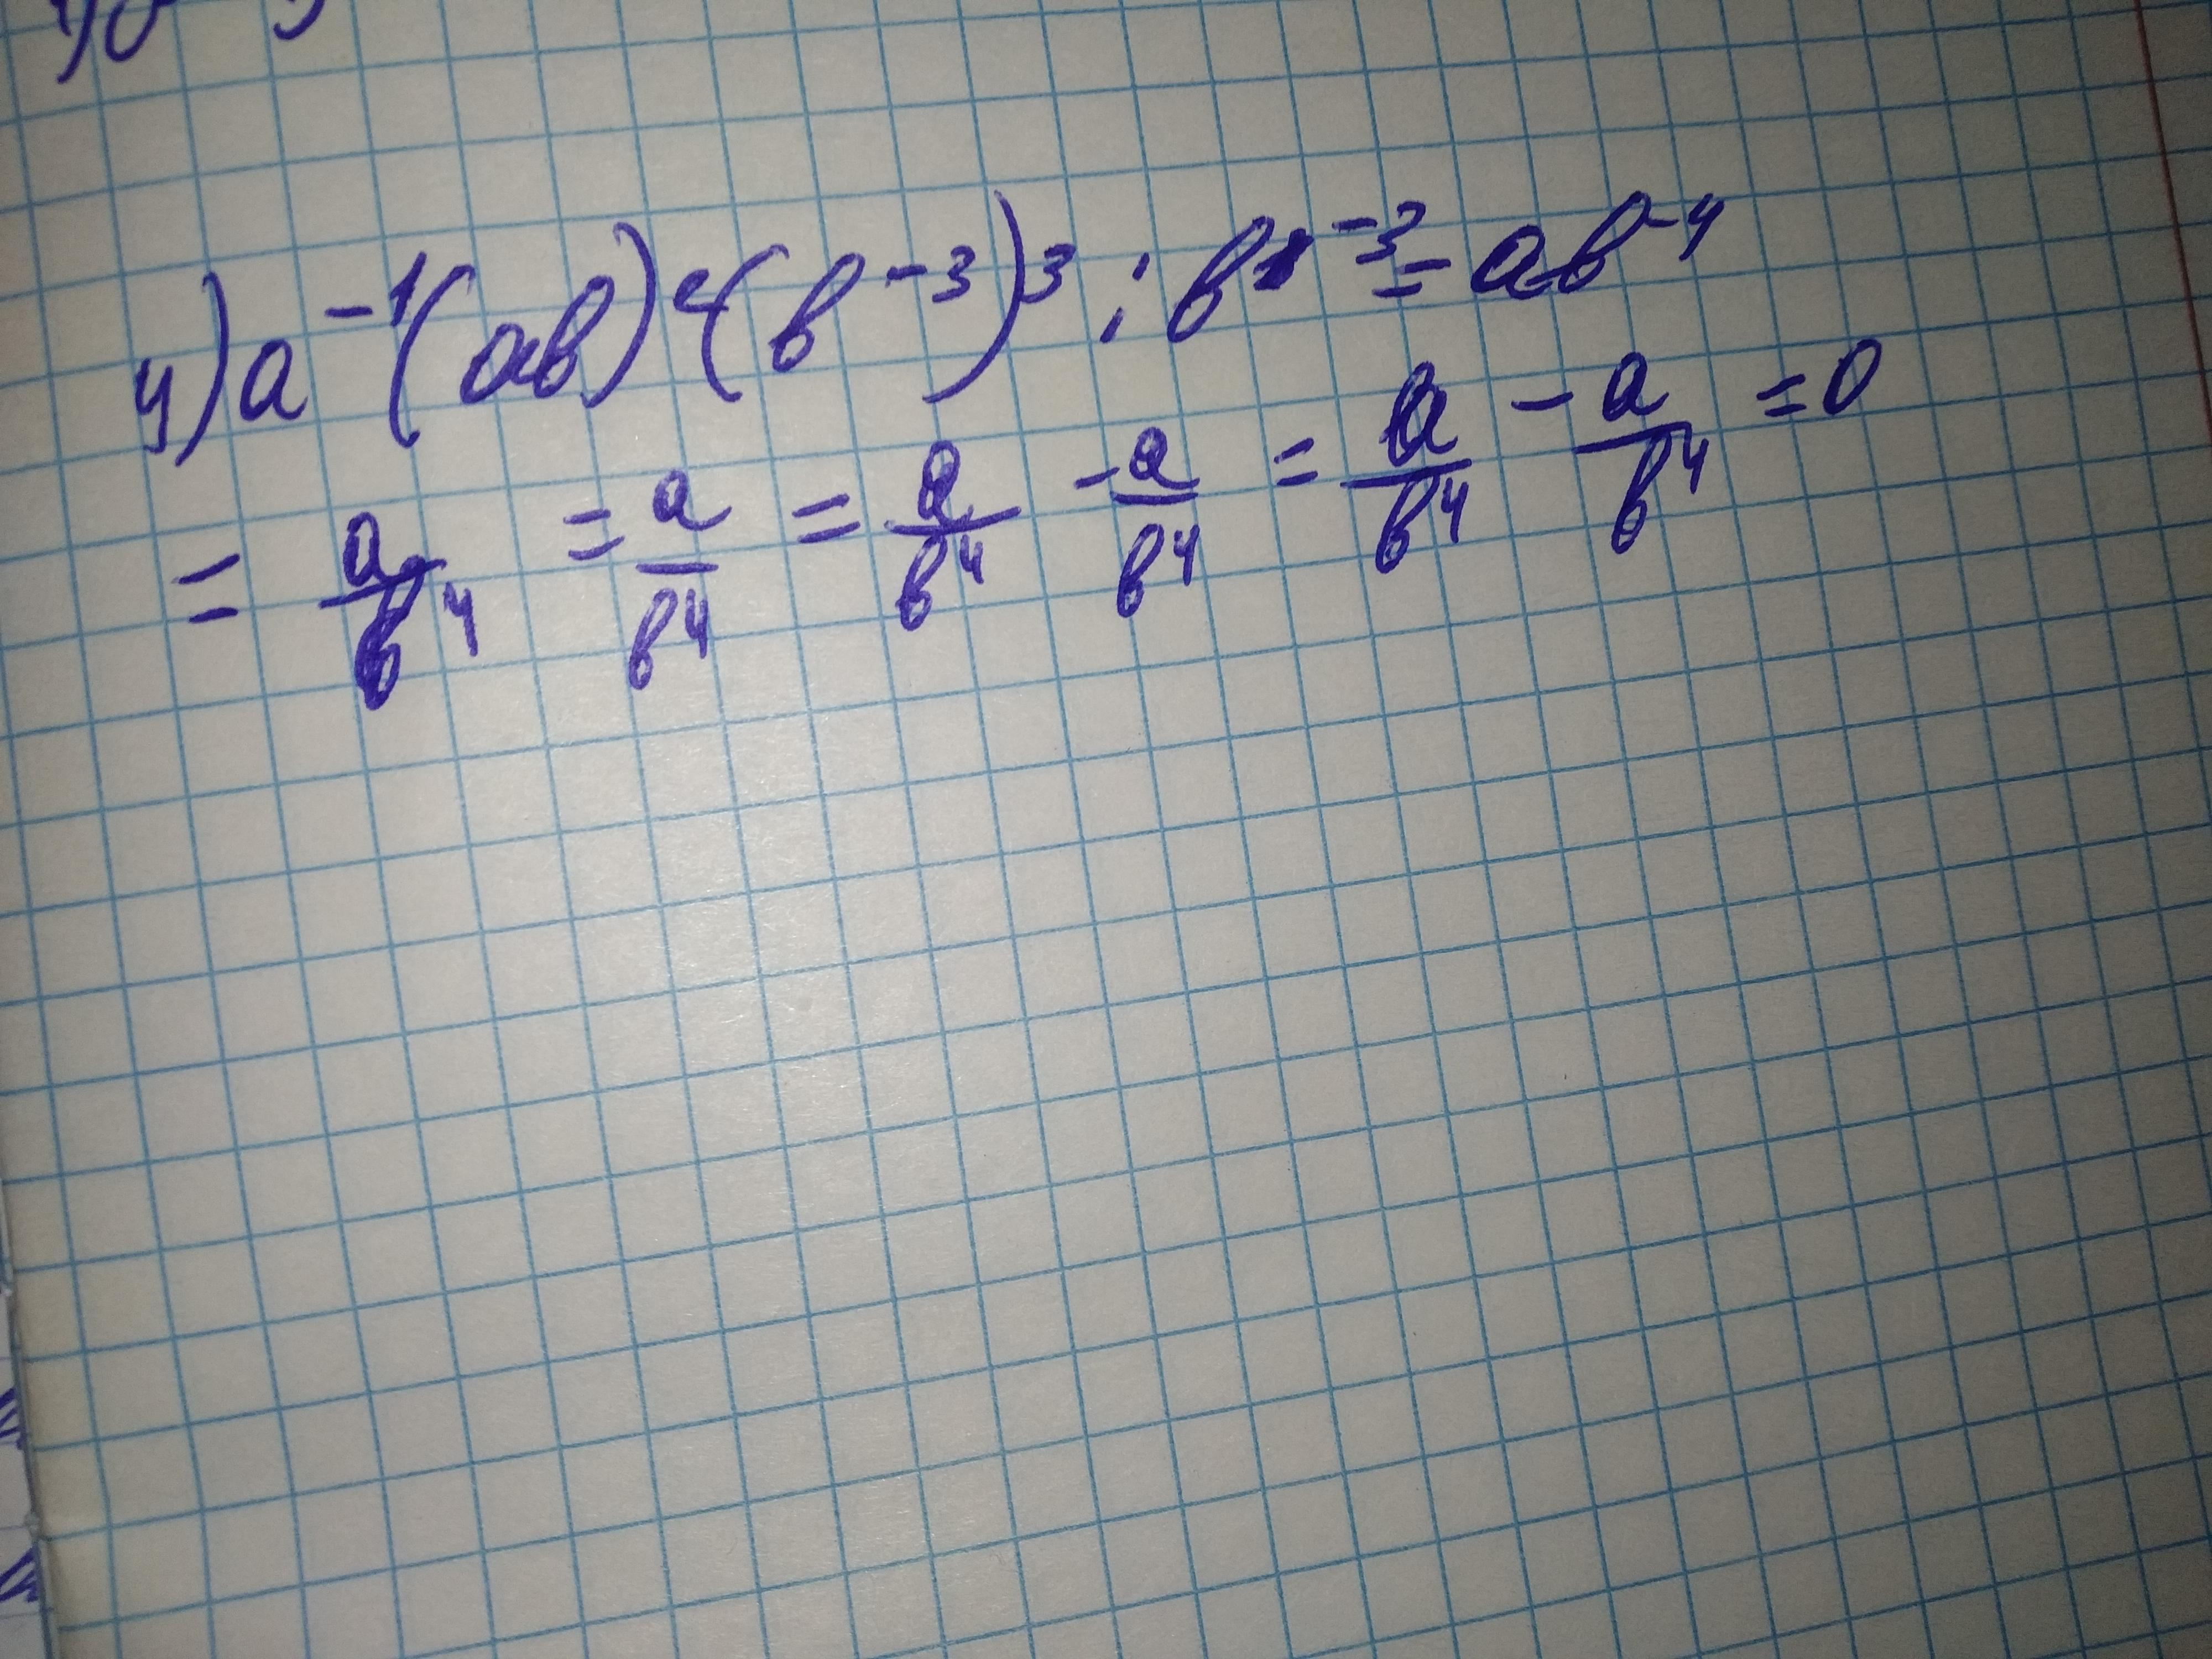 4) a⁻¹(ab)²(b⁻³)³ : b⁻³ = ab⁻⁴
= a/b⁴ = a/b⁴ = a/b⁴ - a/b⁴ = a/b⁴ - a/b⁴ = 0